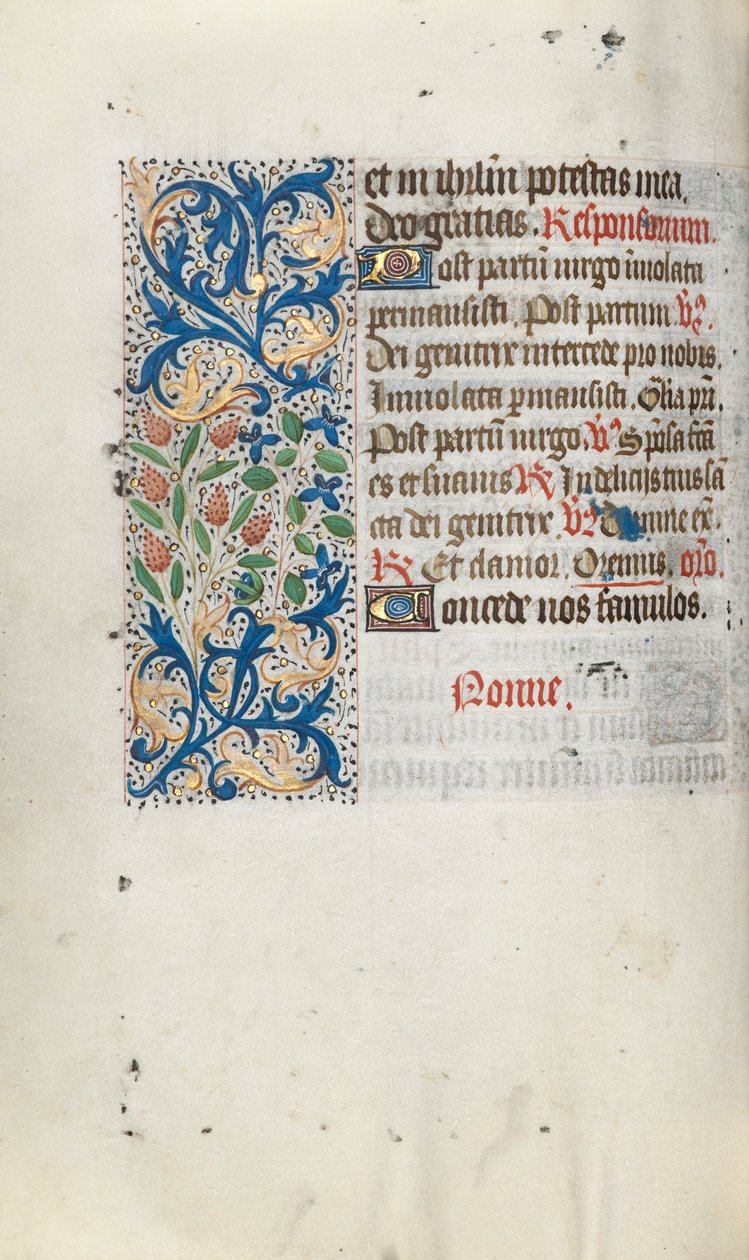 et in ihrl̄m potestas mea.
Deo gratias. Responsorium.
Post partū uirgo īuiolata
permansisti. Post partum. V̄s.
Dei genitrix intercede pro nobis.
Inuiolata p̄mansisti. Gl̄ia pr̄i.
Post partū uirgo. V̄s Sp̄osa fc̄a
es et suauis R̄ In delicijs tuis sā
cta dei genitrix. V̄s Domine ex̄.
R̄ Et clamor. Oremus. or̄o.
Concede nos famulos.
Nonne.